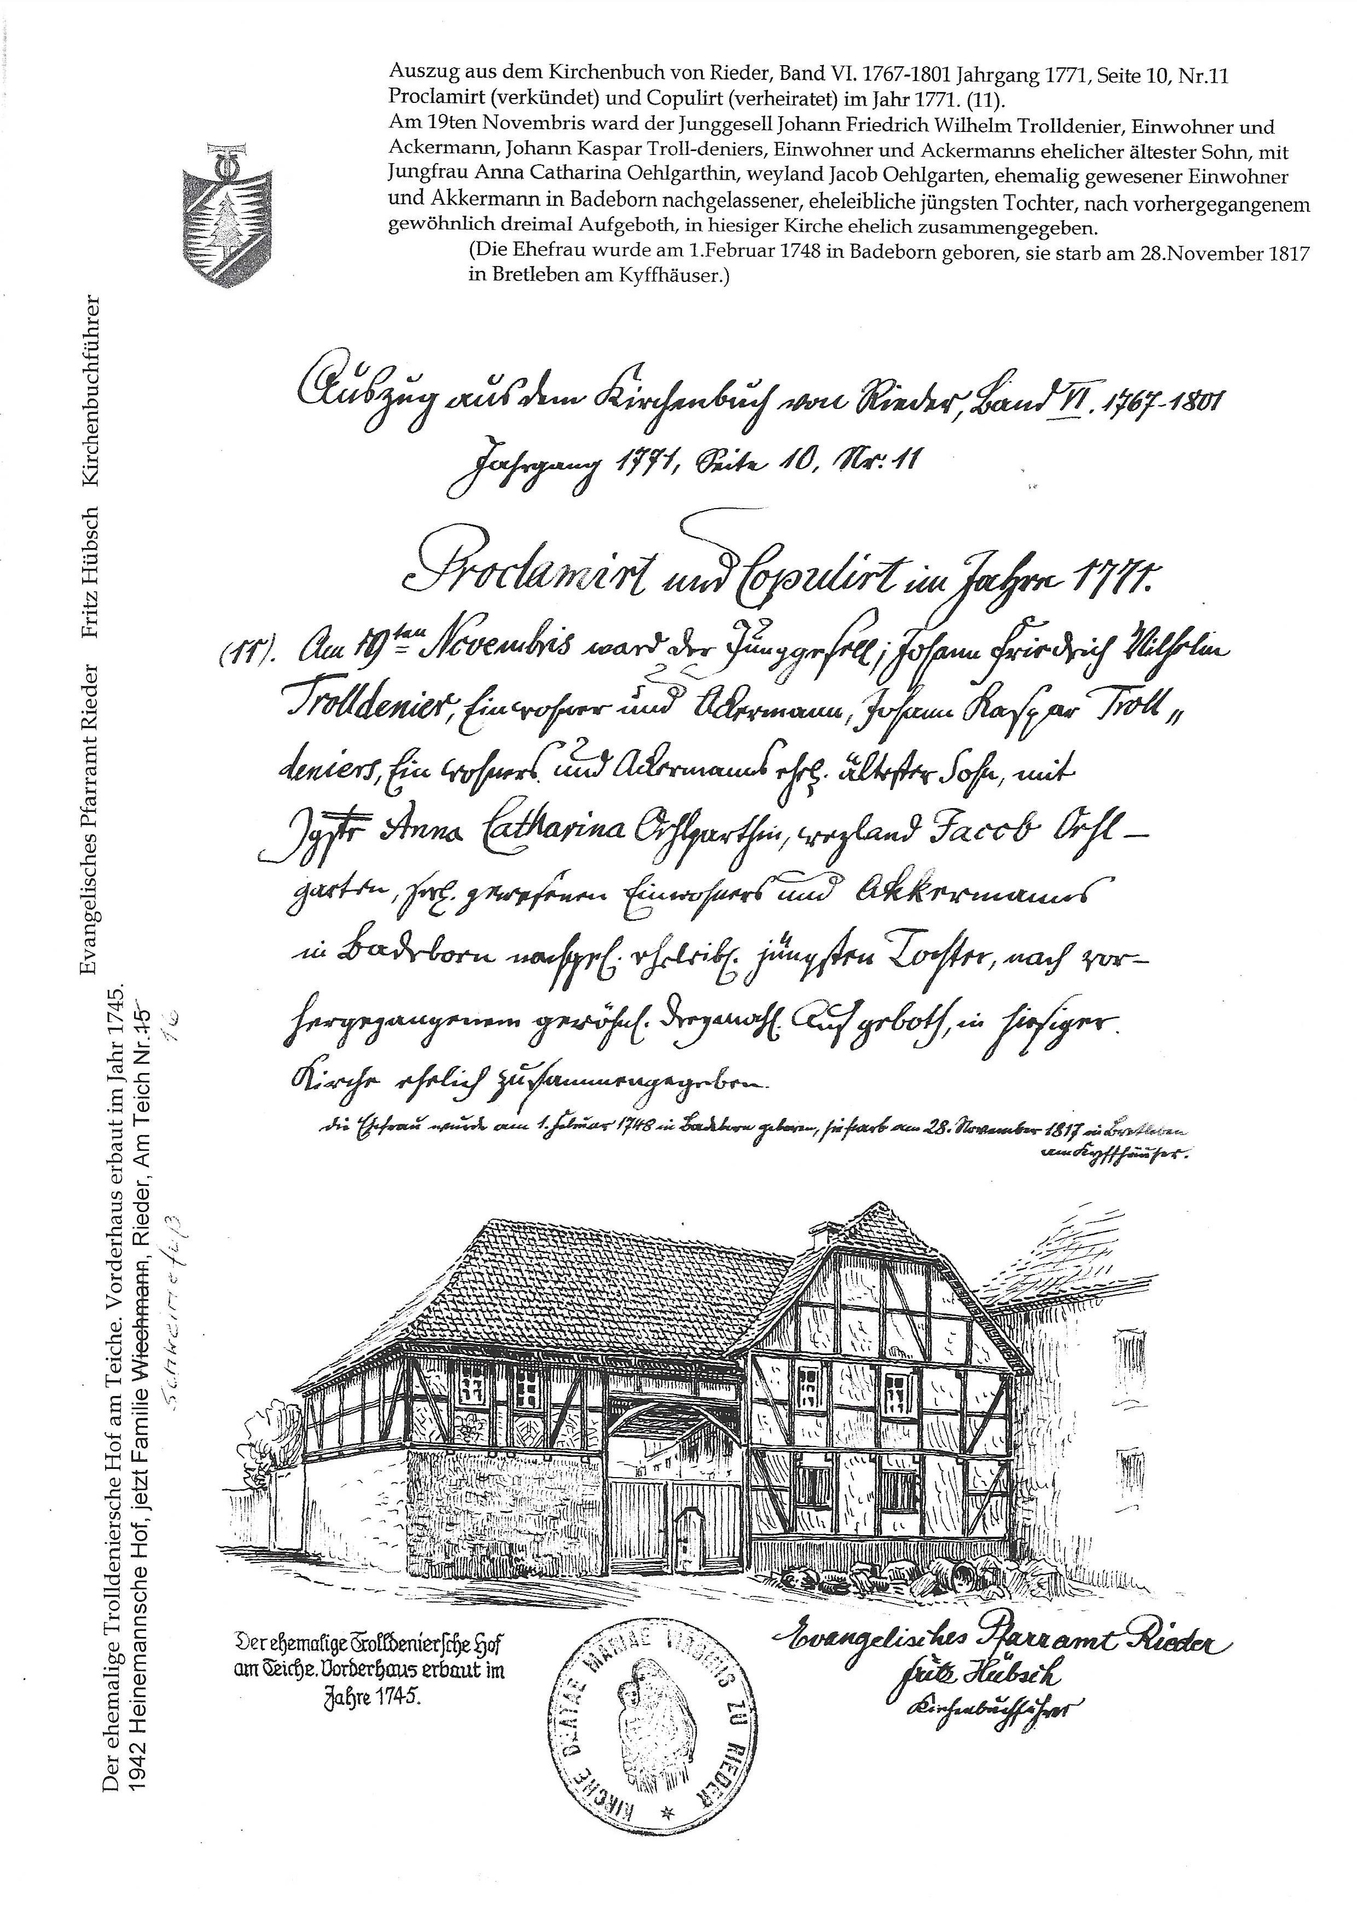 Auszug aus dem Kirchenbuch von Rieder, Band VI. 1767-1801 Jahrgang 1771, Seite 10, Nr.11
Proclamirt (verkündet) und Copulirt (verheiratet) im Jahr 1771. (11).
Am 19ten Novembris ward der Junggesell Johann Friedrich Wilhelm Trolldenier, Einwohner und
Ackermann, Johann Kaspar Troll-deniers, Einwohner und Ackermanns ehelicher ältester Sohn, mit
Jungfrau Anna Catharina Oehlgarthin, weyland Jacob Oehlgarten, ehemalig gewesener Einwohner
und Akkermann in Badeborn nachgelassener, eheleibliche jüngsten Tochter, nach vorhergegangenem
gewöhnlich dreimal Aufgeboth, in hiesiger Kirche ehelich zusammengegeben.
(Die Ehefrau wurde am 1.Februar 1748 in Badeborn geboren, sie starb am 28.November 1817
in Bretleben am Kyffhäuser.)
Auszug aus dem Kirchenbuch von Rieder, Band VI. 1767-1801
Jahrgang 1771, Seite 10, Nr. 11
Proclamirt und Copulirt im Jahre 1771.
(11). Am 19ten Novembris ward der Junggesell, Johann Friedrich Wilhelm
Trolldenier, Einwohner und Ackermann, Johann Kaspar Troll„
deniers, Einwohners und Ackermanns ehel. ältester Sohn, mit
Jgfr Anna Catharina Oehlgarthin, weyland Jacob Oehl–
garten, gewesenen Einwohners und Akkermanns
in Badeborn nachgel. eheleibl. jüngsten Tochter, nach vor–
hergegangenem gewöhnl. dreymahl. Aufgeboth, in hiesiger
Kirche ehelich zusammengegeben.
die Ehefrau wurde am 1. Februar 1748 in Badeborn geboren, sie starb am 28. November 1817 in Bretleben
am Kyffhäuser.
Der ehemalige Trolldeniersche Hof
am Teiche. Vorderhaus erbaut im
Jahre 1745.
KIRCHE BEATAE MARIAE VIRGINIS ZU RIEDER *
Evangelisches Pfarramt Rieder
Fritz Hübsch
Kirchenbuchführer
Evangelisches Pfarramt Rieder Fritz Hübsch Kirchenbuchführer
Der ehemalige Trolldeniersche Hof am Teiche. Vorderhaus erbaut im Jahr 1745.
1942 Heinemannsche Hof, jetzt Familie Wiechmann, Rieder, Am Teich Nr.15
16